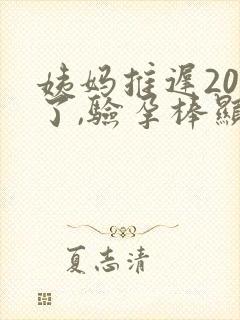 姨妈推迟20
了,验孕棒显
夏志清